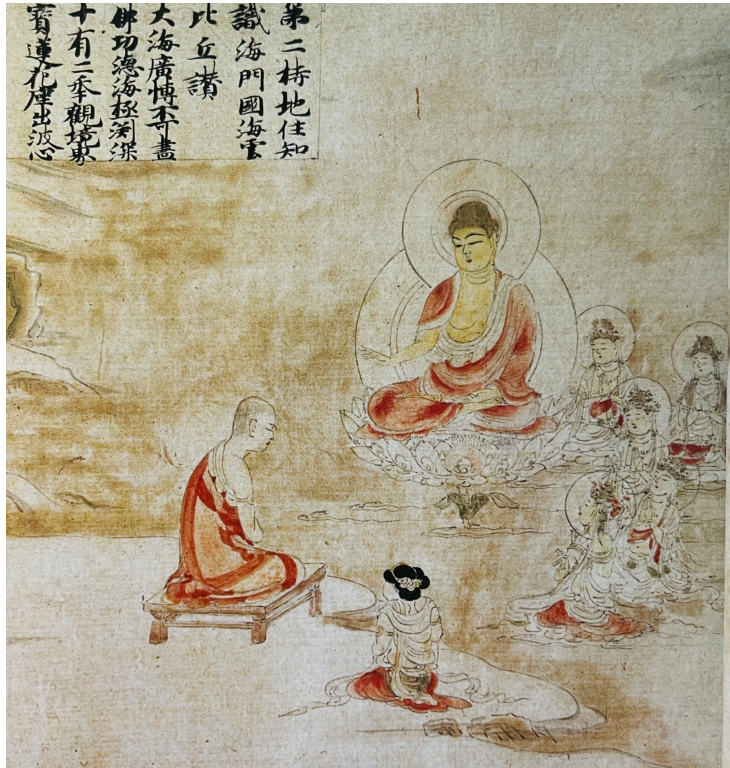 第二持地住知
識海門國海雲
比丘讃
大海廣博不可盡
佛功德海極渕深
十有二年觀境界
寶蓮花座出波心